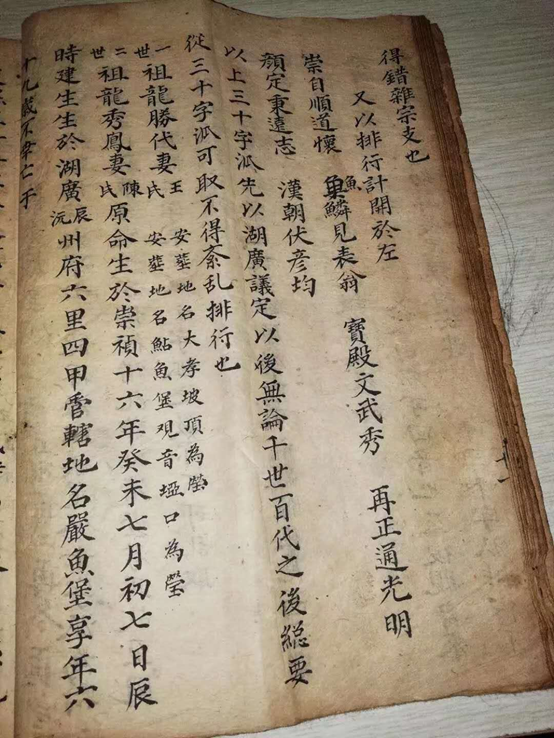 得錯雜宗支也
又以排行計開於左
崇自順道懷 魚鱗見表翁 寶殿文武秀 再正通光明
顏定東遠志 漢朝伏彦均
以上三十字派先以湖廣議定以後無論千世百代之後総要
從三十字派可取不得紊乱排行也
一世祖龍勝代妻王氏 安塟地名大孝坡頂為瑩
二世祖龍秀鳳妻陳氏 安塟地名鮎魚堡观音堙口為瑩
原命生於崇禎十六年癸未七月初七日辰
時建生生於湖廣辰沅州府六里四甲管轄地名嚴魚堡享年六
十九歲不幸亡于